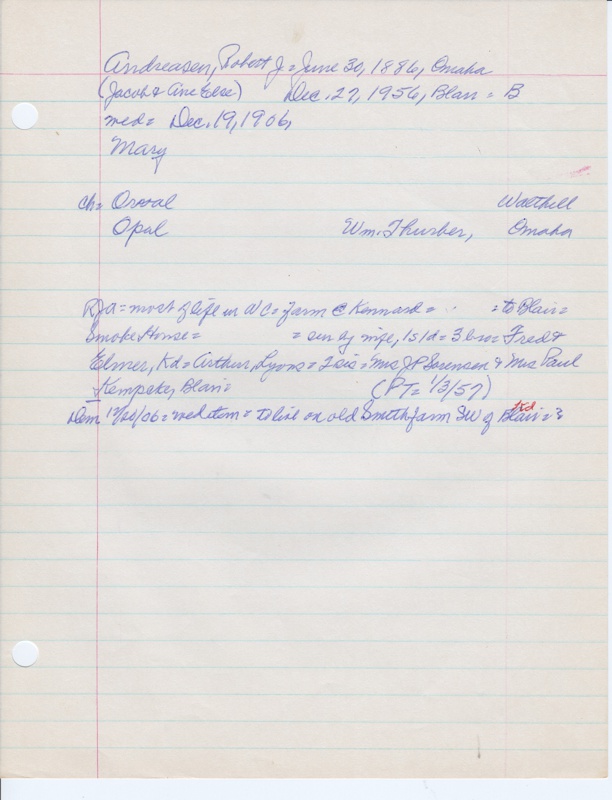 Andreasen, Robert J = June 30, 1886, Omaha
(Jacob & Ane Else) Dec. 27, 1956, Blair = B
med = Dec. 19, 1906,
Mary
ch = Orval Walthill
Opal Wm. Thurber, Omaha
RJA = most of life in WC = farm @ Kennard = = to Blair =
Smoke House = = sur by wife, 1s 1d = 3 bro = Fred &
Elmer, Kd = Arthur, Lyons = 2 sis = Mrs JP Sorensen & Mrs Paul
Kempcke, Blair = (PT = 1/3/57)
Dem 12/20/06 = wed item = to live on old Smith farm SW of Blair =
Kd